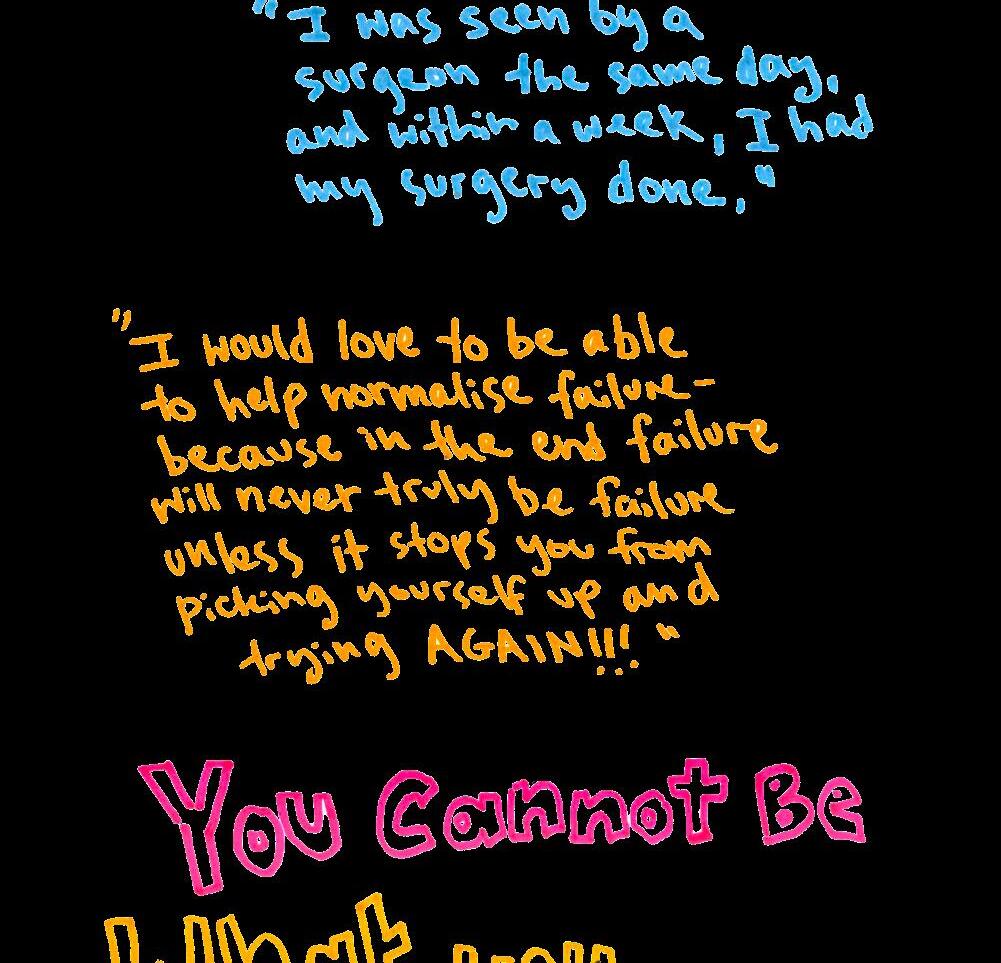 "I was seen by a
surgeon the same day,
and within a week, I had
my surgery done."
"I would love to be able
to help normalise failure-
because in the end failure
will never truly be failure
unless it stops you from
picking yourself up and
trying AGAIN!!!"
You Cannot Be
What you